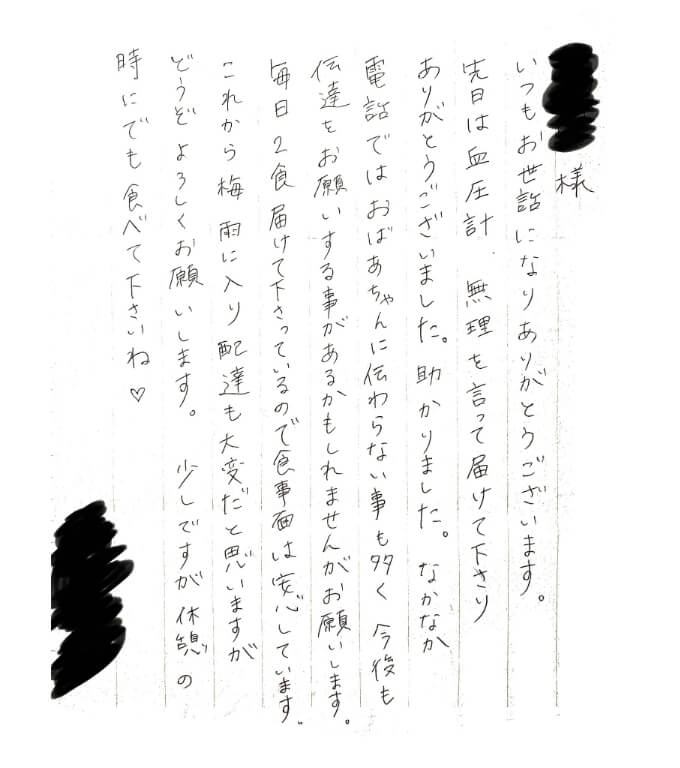 様
いつもお世話になりありがとうございます。
先日は血圧計 無理を言って届けて下さり
ありがとうございました。助かりました。なかなか
電話ではおばあちゃんに伝わらない事も多く 今後も
伝達をお願いする事があるかもしれませんがお願いします。
毎日2食届けて下さっているので食事面は安心しています。
これから梅雨に入り配達も大変だと思いますが
どうぞよろしくお願いします。 少しですが休憩の
時にでも食べて下さいね♡